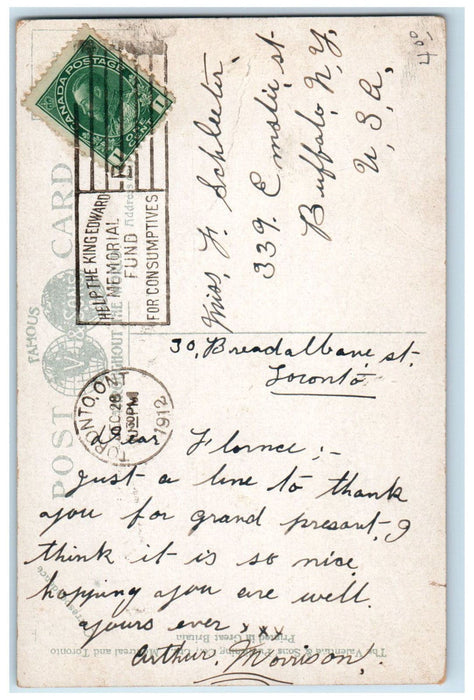 4.00
CANADA POSTAGE
1 ONE CENT 1
HELP THE KING EDWARD
MEMORIAL
FUND
FOR CONSUMPTIVES
FAMOUS
POST CARD
TORONTO, ONT
DEC 28
PM
1912
Miss, F. Schleeter
339. E msliest
Buffalo N.Y.
U.S.A.
30, Breadalbane, st.
Toronto
Dear Flornce :-
Just a line to thank
you for grand presant, I
think it is so nice
hopping you are well.
yours ever xxx
Arthur. Morrison.
The Valentine & Sons Publishing Co., Ltd., Montreal and Toronto
Printed in Great Britain